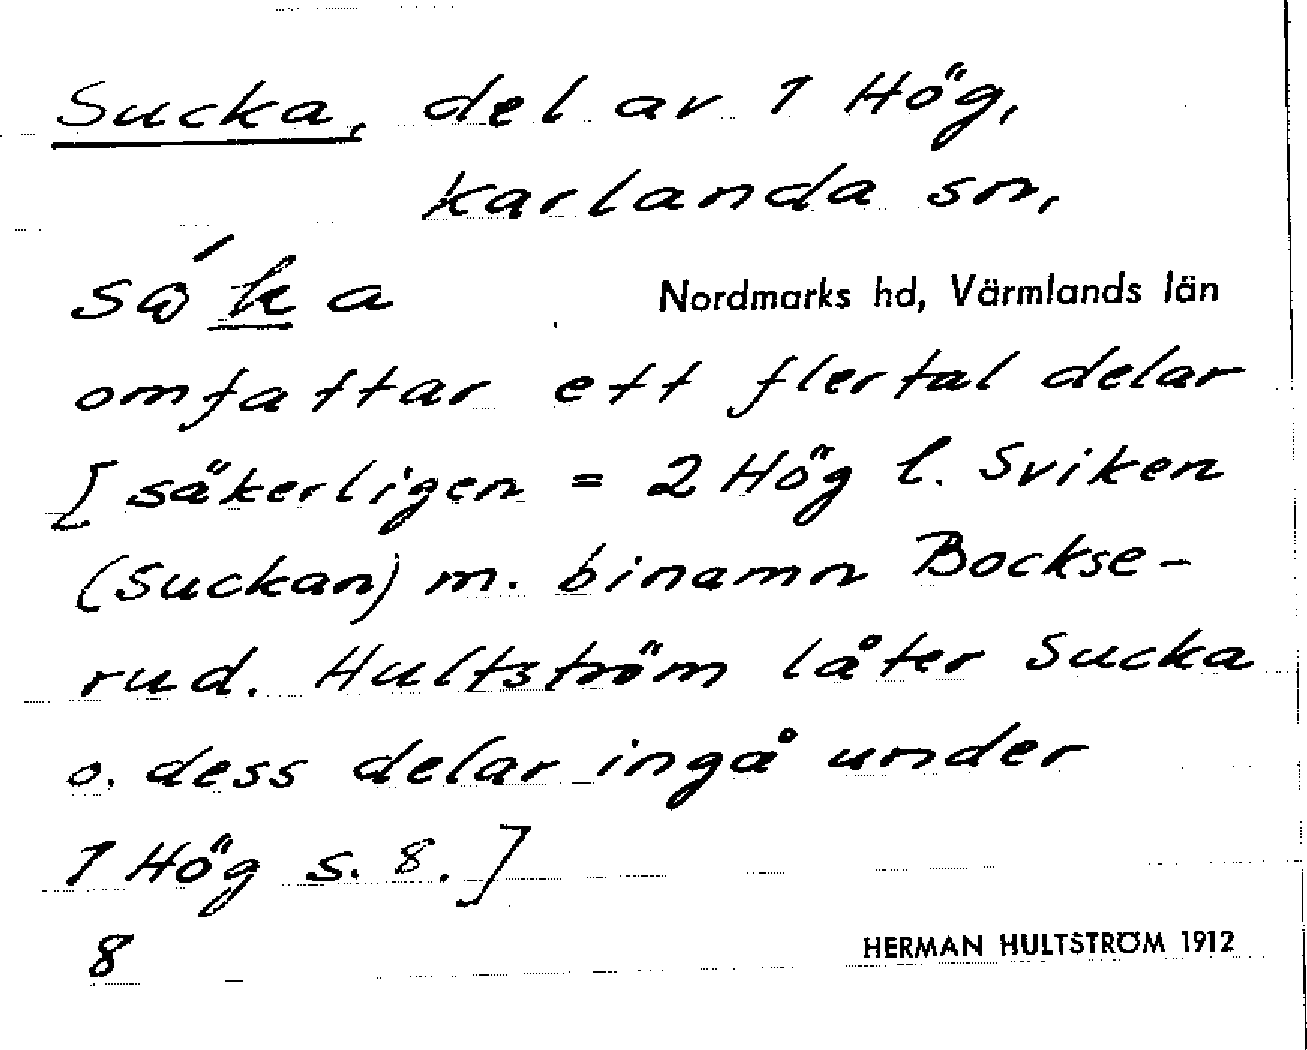 Sucka, del av 1 Hög,
Karlanda sn,
Nordmarks hd, Värmlands län
omfattar ett flertal delar
[säkerligen = 2 Hög l. Sviken
(Suckan) m. binamn Bockse-
rud. Hultström låter Sucka
o. dess delar ingå under
1 Hög s. 8.]
8
HERMAN HULTSTRÖM 1912